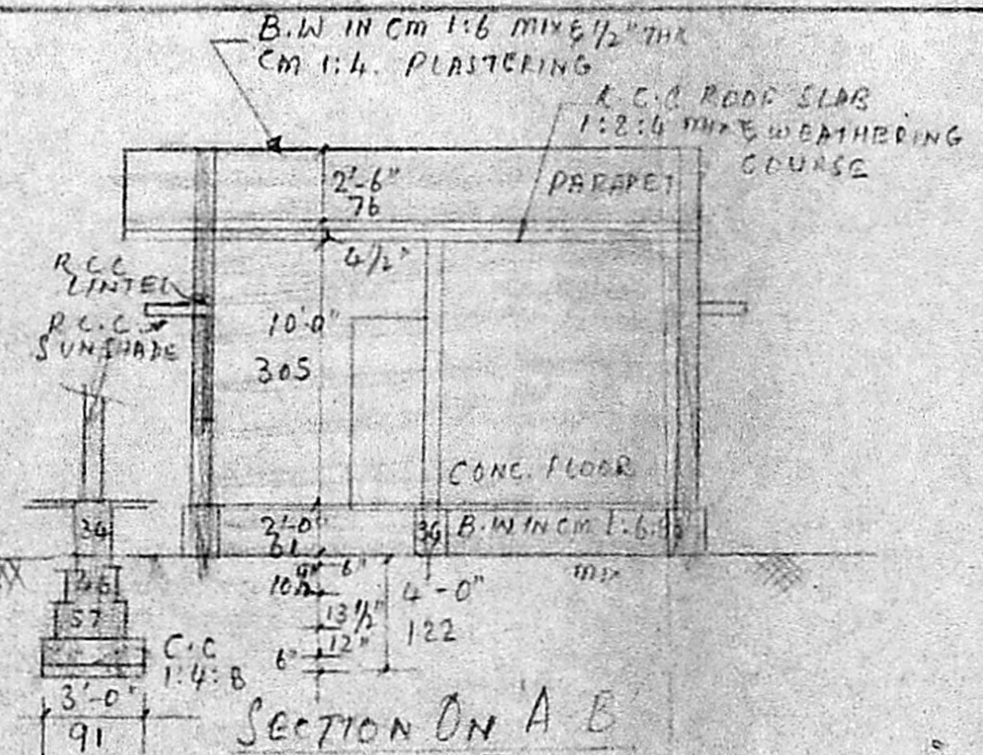 B.W IN CM 1:6 MIX & 1/2" THK
CM 1:4. PLASTERING
R.C.C ROOF SLAB
1:2:4 MIX & WEATHERING
COURSE
2'-6"
76
PARAPET
4 1/2"
R.C.C
LINTEL
R.C.C.
SUNSHADE
10'-0"
305
CONC. FLOOR
2'-0"
61
34
B.W IN CM 1:6
MIX
34
57
9"
6"
4'-0"
122
13 1/2"
12"
6"
C.C
1:4:8
3'-0"
91
SECTION ON 'A B'